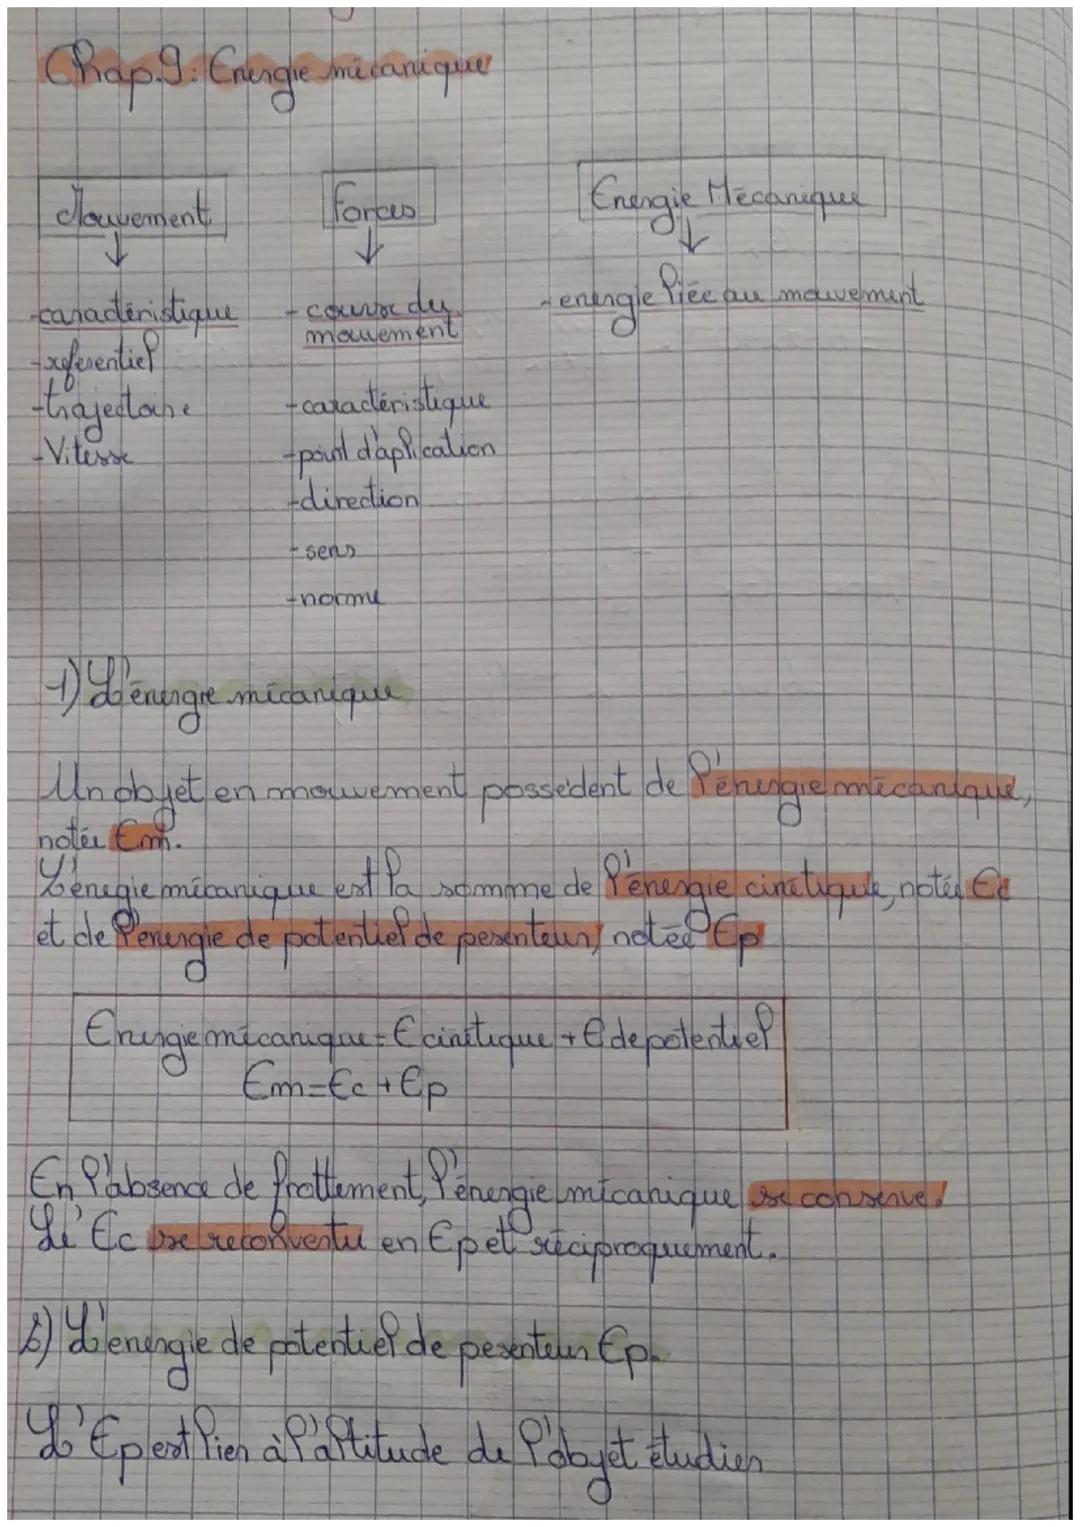 Chap.9: Energie mécanique
Mouvement
Forces
Energie Mécanique
-caractéristique
-referentiel
-trajectoire
-Vitesse
-cause du
mouvement
-caractéristique
-point d'aplication
-direction
-sens
-norme
-energie liée au mouvement
1) L'énergie mécanique
Un objet en mouvement possèdent de l'énergie mécanique,
notée Em.
L'énegie mécanique est la somme de l'énergie cinétique, notée Ec
et de l'energie de potentiel de pesenteur, notée Ep
Energie mécanique = E cinétique + E de potentiel
Em=Ec+Ep
En l'absence de frottement, l'énergie mécanique se conserve.
L' Ec se reconvertie en Ep et réciproquement.
2) L'energie de potentiel de pesenteur Ep.
L' Ep est lier à l'altitude de l'objet étudier